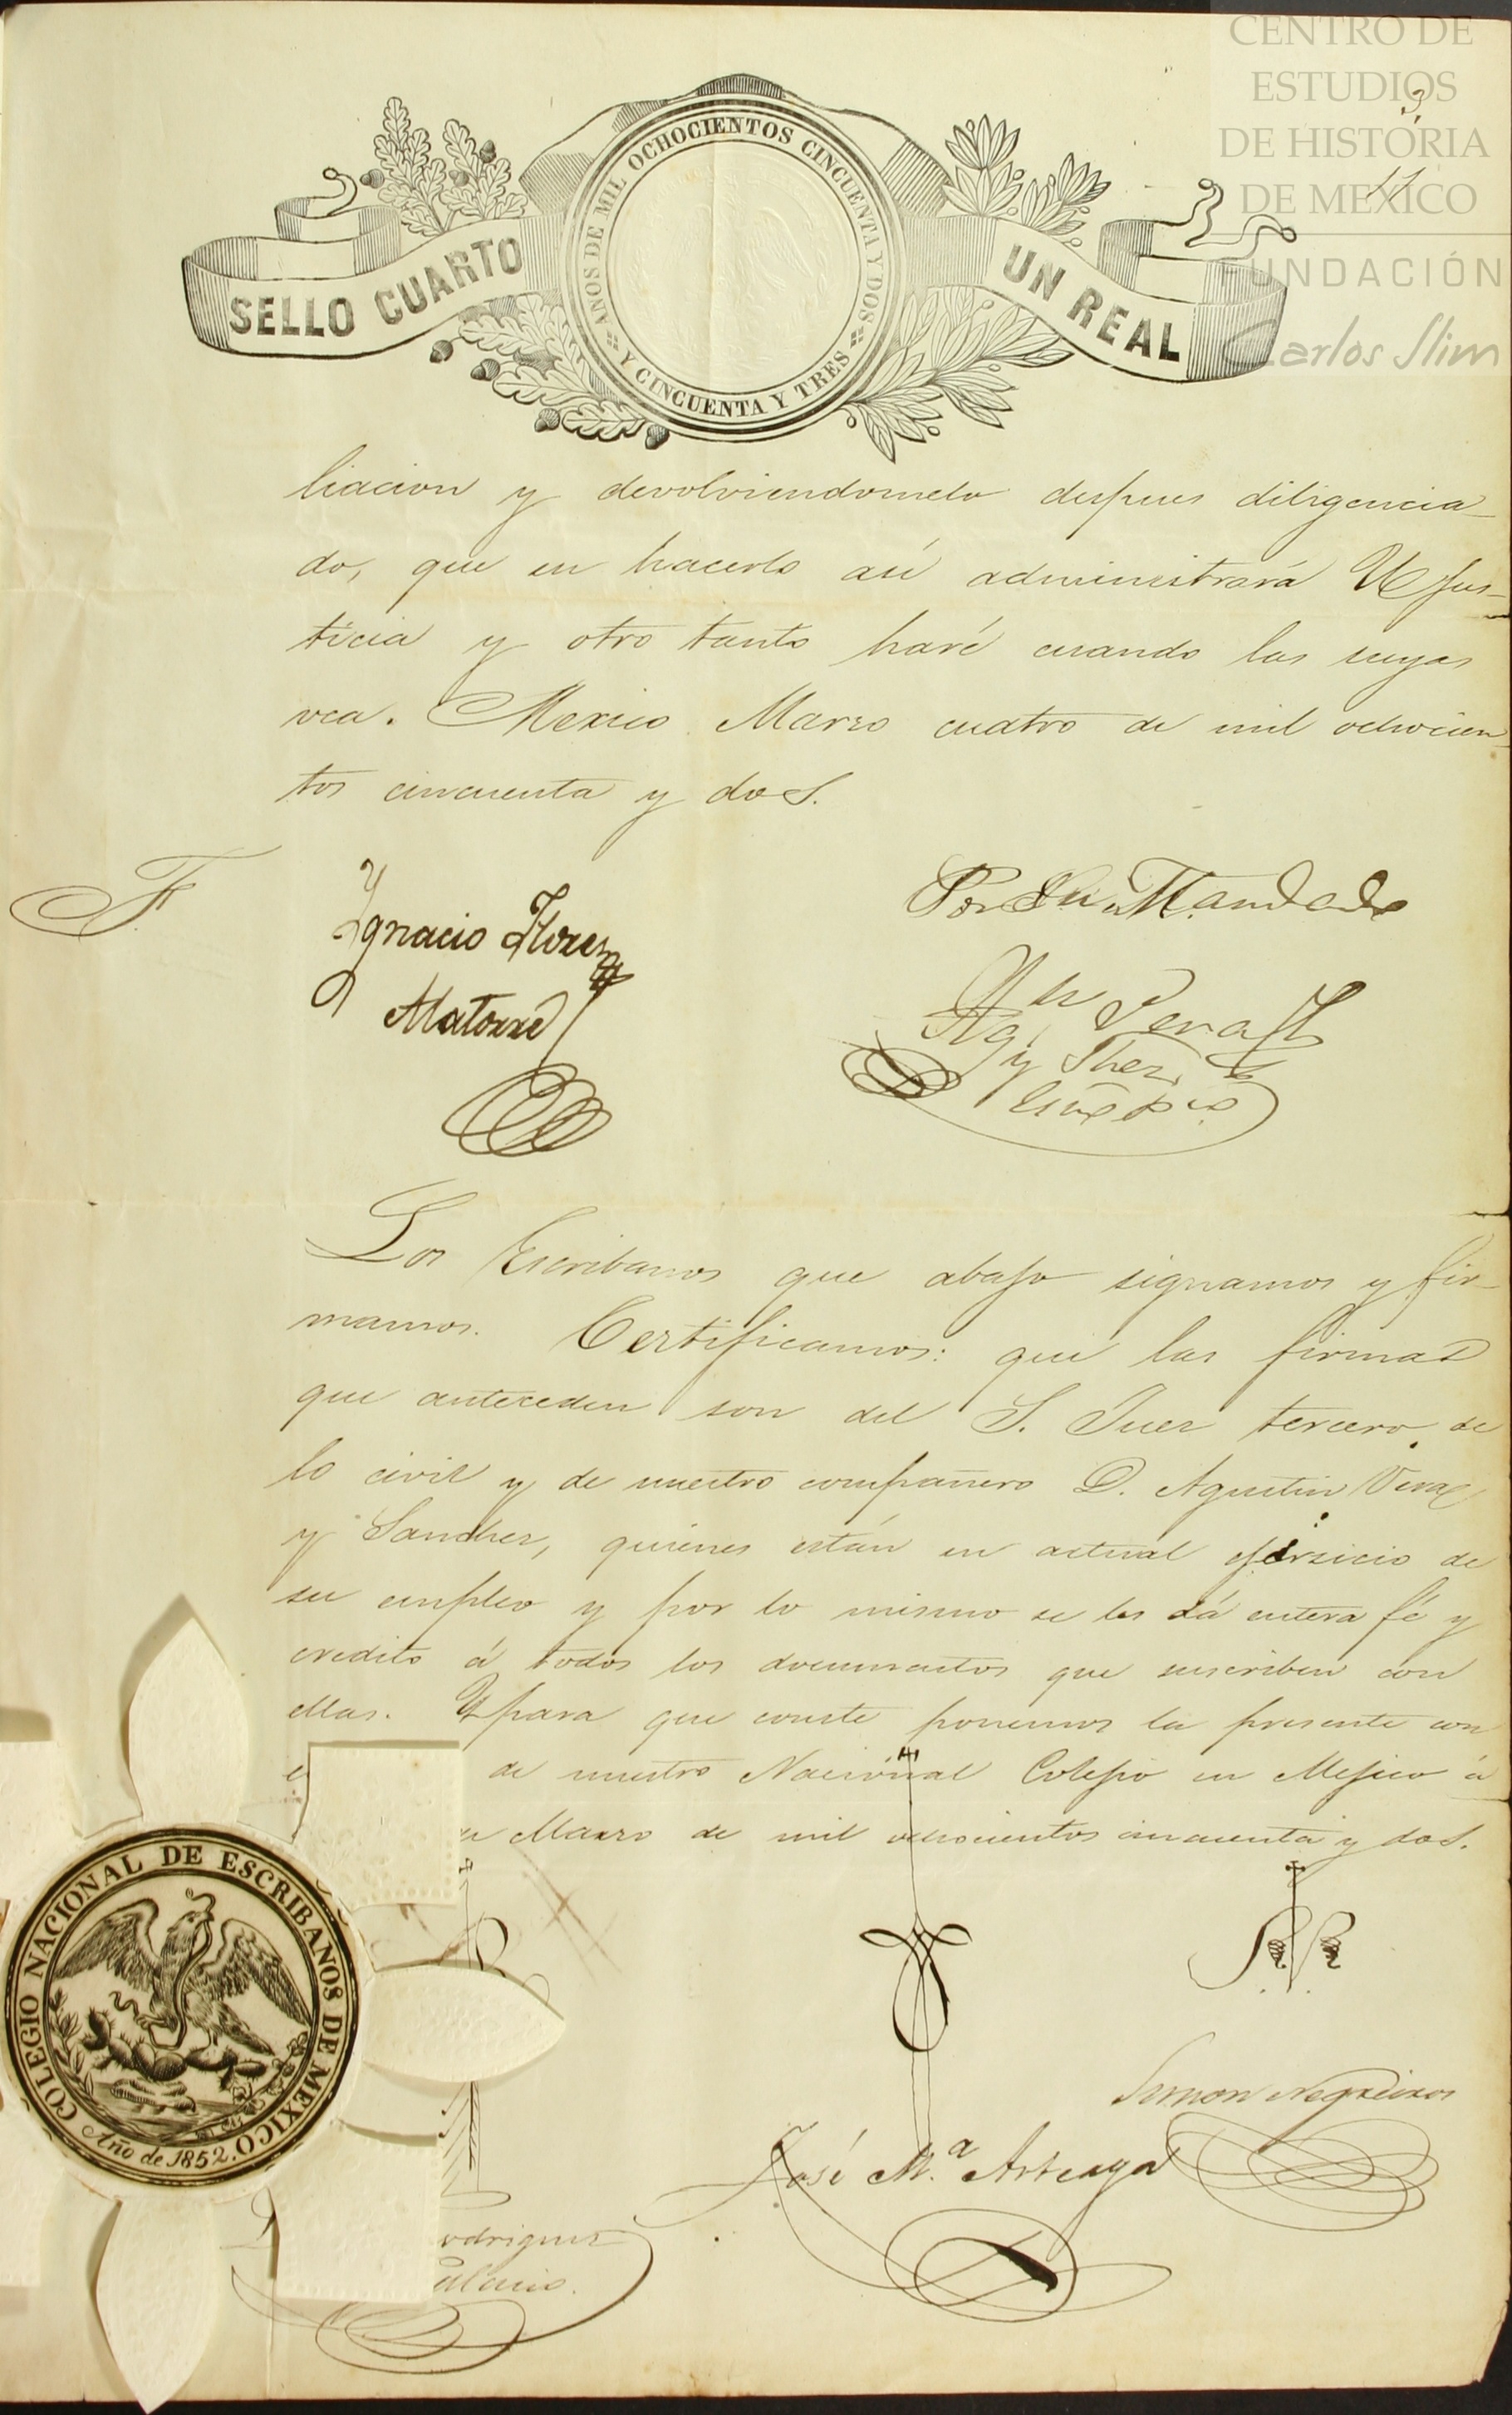 CENTRO DE
ESTUDIOS
DE HISTORIA
DE MEXICO
FUNDACIÓN
Carlos Slim
3
11
SELLO CUARTO
AÑOS DE MIL OCHOCIENTOS CINCUENTA Y DOS
Y CINCUENTA Y TRES
UN REAL
liacion y devolviendomelo despues diligencia-
do, que en hacerlo asi administrará V. jus-
ticia y otro tanto haré cuando las suyas
vea. Mexico Marzo cuatro de mil ochocien-
tos cincuenta y dos.
F
Ygnacio Flores
Alatorre
Por Su Mandado
Agn Vera
y Shez
Los Escribanos que abajo signamos y fir-
mamos. Certificamos: que las firmas
que anteceden son del S. Juez tercero de
lo civil y de nuestro compañero D. Agustin Vera
y Sanchez, quienes están en actual ejersicio de
su empleo y por lo mismo se les dá entera fé y
credito á todos los documentos que suscriben con
ellas. Y para que conste ponemos la presente con
de nuestro Nacional Colejio en Mejico á
Marzo de mil ochocientos cincuenta y dos.
COLEGIO NACIONAL DE ESCRIBANOS DE MEXICO
Año de 1852.
Simon Negreiros
José M.ª Arteaga
odriguez
alacio.